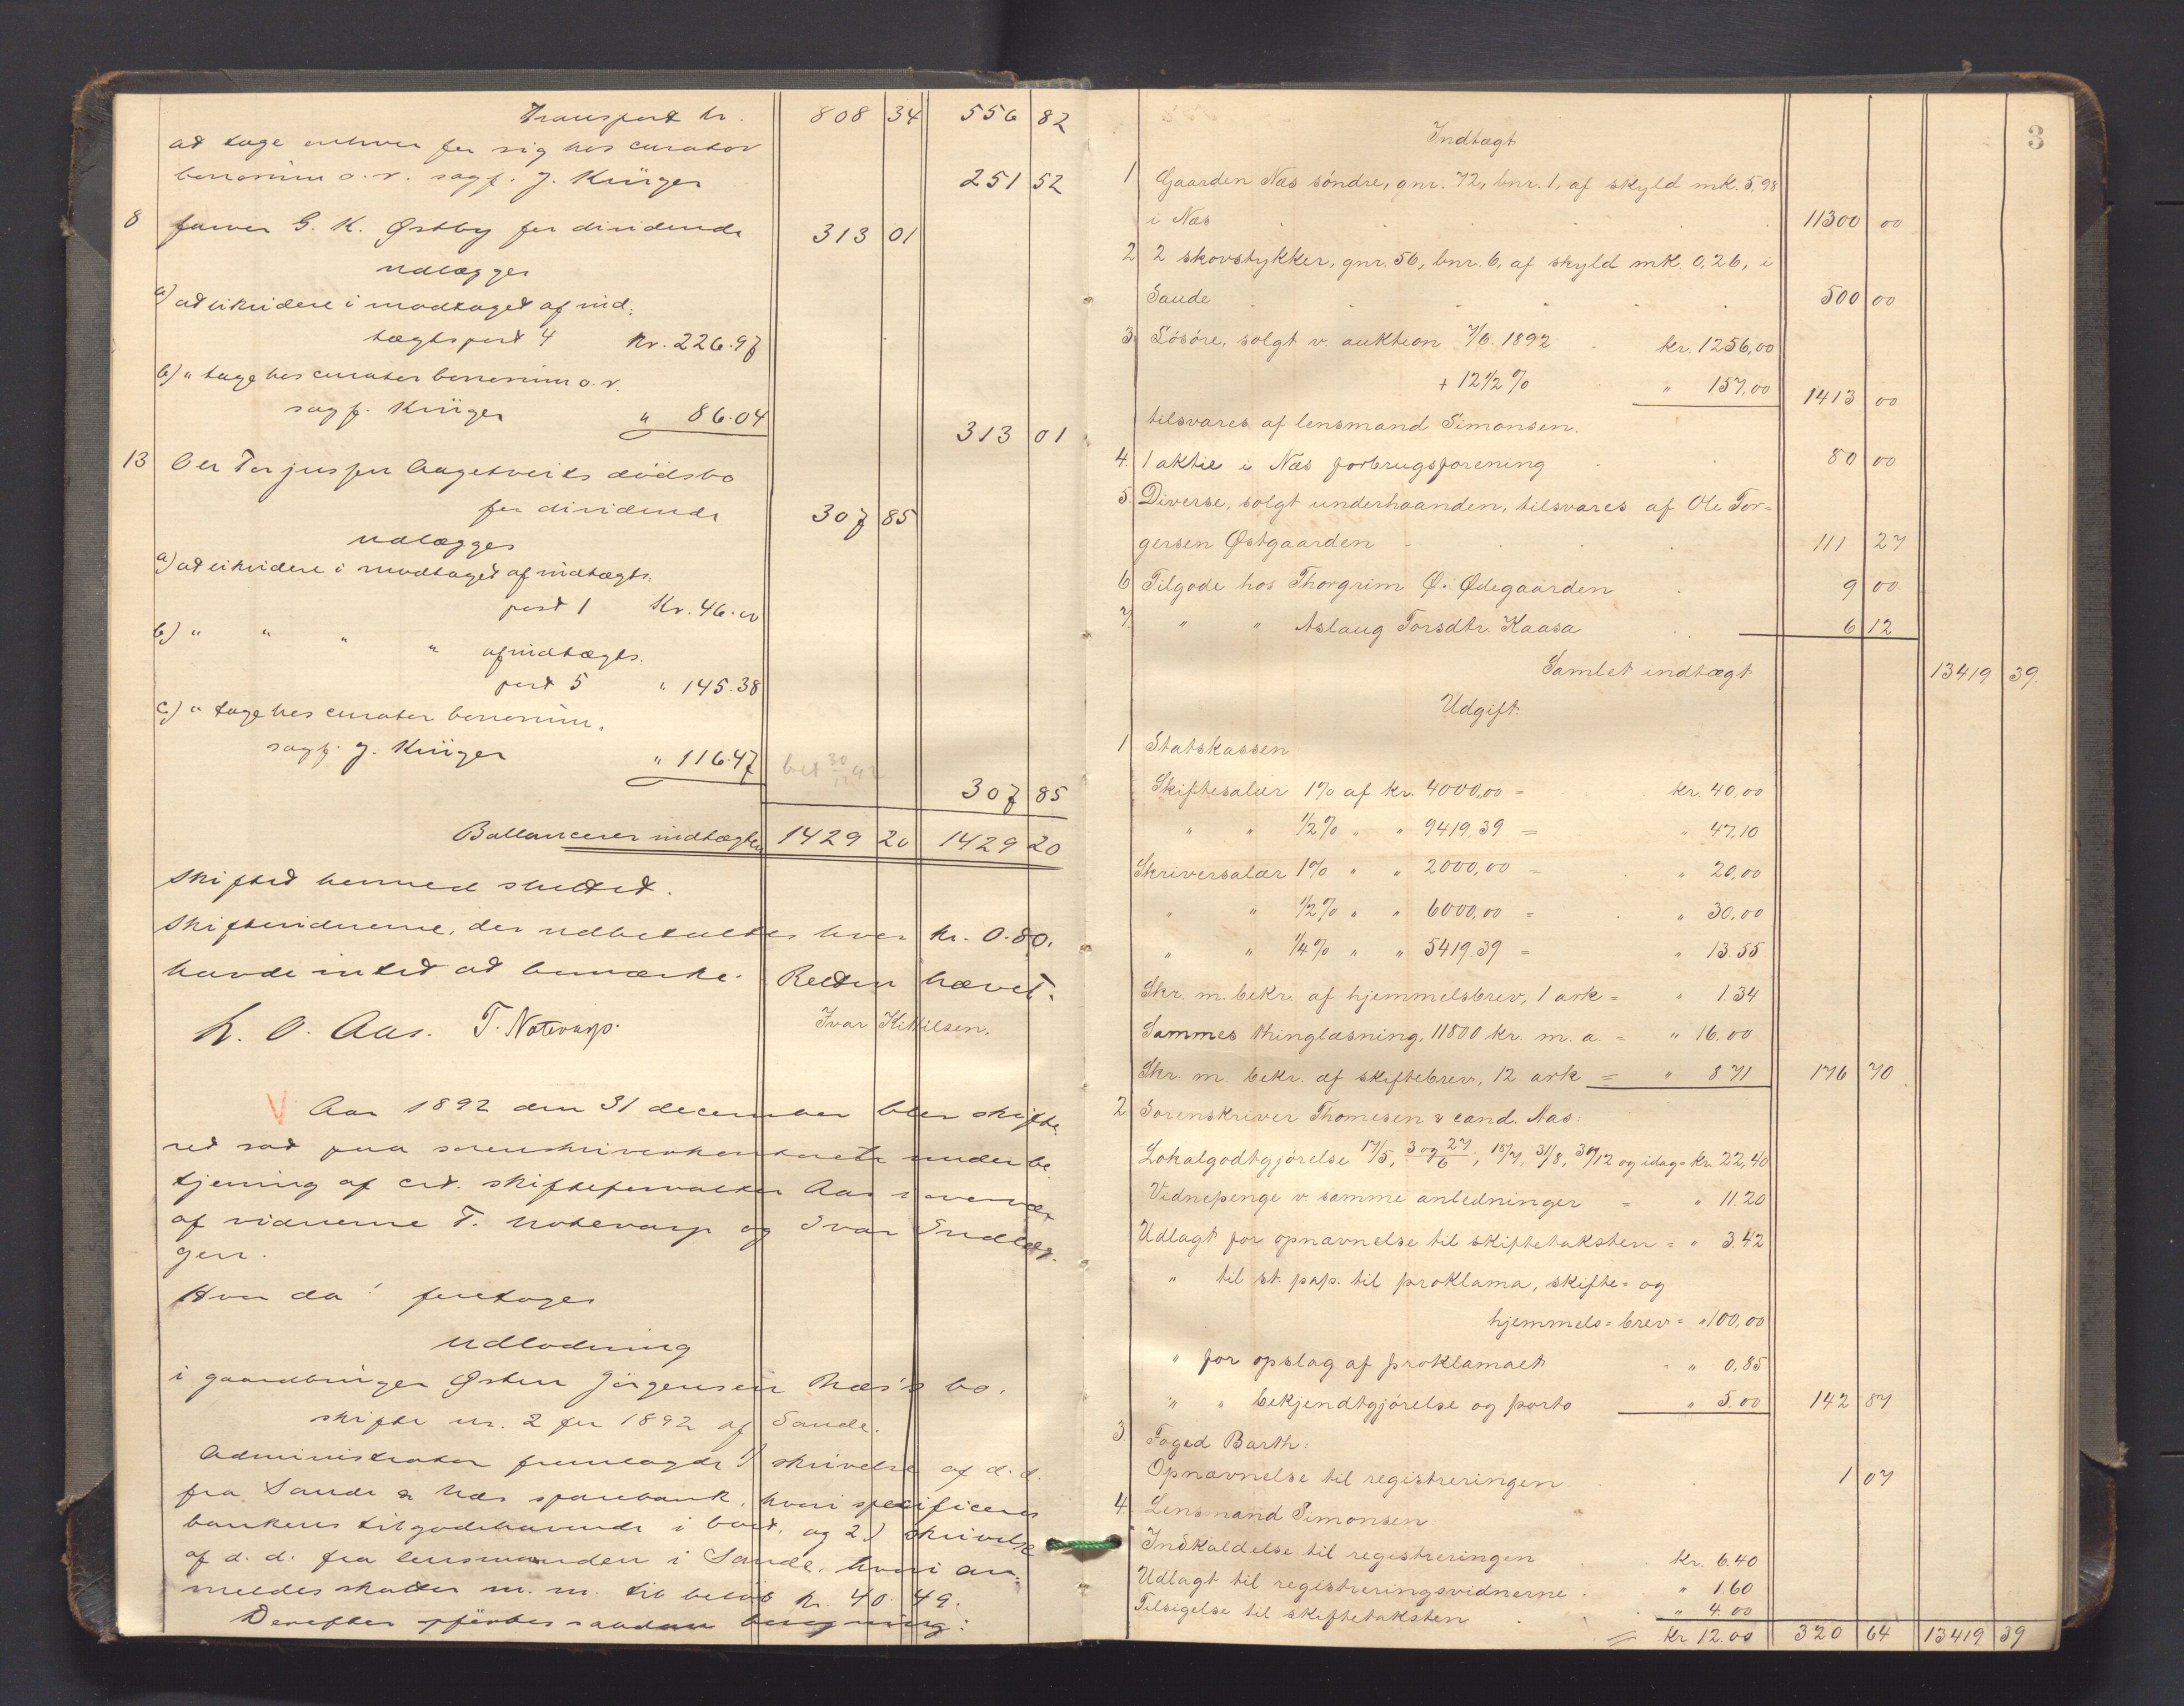 Transport kr. 808 34 556 82
at tage enhver for sig hos curator
bonorum o. r. sagf. J. Krüger 251 52
8 farver G. K. Østby for dividende 313 01
udlægges
a) at likvidere i modtaget af ind-
tægtspost 4 kr. 226.97
b) " tage hos curator bonorum o. r.
sagf. Krüger " 86.04 313 01
13 Ole Torjussen Aagetveits dödsbo
for dividende 307 85
udlægges
a) at likvidere i modtaget af indtægts-
post 1 kr. 46.00
b) " " " " af indtægts-
post 5 " 145.38
c) " tage hos curator bonorum,
sagf. J. Krüger " 116.47 bet 30/12 92
307 85
Ballancerer indtægten 1429 20 1429 20
Skiftet hermed sluttet.
Skiftevidnerne, der udbetaltes hver kr. 0.80,
havde intet at bemærke. Retten hævet.
H. O. Aas. T. Notevarp. Ivar Kittilsen.
V Aar 1892 den 31 december blev skifte-
ret sat paa sorenskriverkontoret under be-
tjening af cst. skifteforvalter Aas i overvær
af vidnerne T. Notevarp og Ivar
gen.
Hvor da: foretoges
Udlodning
i gaardbruger Østen Jörgensen Næs's bo.
skifte nr. 2 for 1892 af Saude.
Administrator fremlagde 1) skrivelse af d. d.
fra Saude & Næs sparebank, hvori specificeres
bankens tilgodehavende i boet, og 2) skrivelse
af d. d. fra lensmanden i Saude, hvori an-
meldes skatter m. m. til beløb kr. 40.49.
Derefter opførtes saadan beregning:
3
Indtægt
1 Gaarden Næs söndre, gnr. 72, bnr. 1, af skyld mk. 5,98
i Næs 11300 00
2 2 skovstykker, gnr. 56, bnr. 6, af skyld mk. 0,26, i
Saude 500 00
3. Lösöre, solgt v. auktion 7/6. 1892 kr. 1256,00
+ 12 1/2 % " 157,00 1413 00
tilsvares af lensmand Simonsen.
4. 1 aktie i Næs forbrugsforening 80 00
5. Diverse, solgt underhaanden, tilsvares af Ole Tor-
gersen Østgaarden 111 27
6 Tilgode hos Thorgrim Ø. Ødegaarden 9 00
7. " " Aslaug Torsdtr. Kaasa 6 12
Samlet indtægt 13419 39.
Udgift.
1 Statskassen
Skiftesalær 1% af kr. 4000,00 = kr. 40,00
" " 1/2% " " 9419.39 = " 47,10
Skriversalær 1% " " 2000,00 = " 20,00
" " 1/2% " " 6000,00 = " 30,00
" " 1/4% " " 5419.39 = " 13.55
Skr. m. bekr. af hjemmelsbrev, 1 ark = " 1.34
Sammes thinglæsning, 11800 kr. m. a. = " 16.00
Skr. m. bekr. af skiftebrev, 12 ark = " 8 71 176 70
2 Sorenskriver Thomesen v cand. Aas:
Lokalgodtgjörelse 17/5, 3 og 27/6, 15/7, 31/8, 30/12 og idag = kr. 22,40
Vidnepenge v. samme anledninger = " 11.20
Udlagt for opnævnelse til skiftetaksten = " 3.42
" til st. pap. til proklama, skifte= og
hjemmels=brev = " 100,00
" for opslag af proklamaet = " 0,85
" " bekjendtgjörelse og porto " 5.00 142 87
3 Foged Barth:
Opnævnelse til registreringen 1 07
4. Lensmand Simonsen
Indkaldelse til registreringen kr. 6.40
Udlagt til registreringsvidnerne " 1.60
Tilsigelse til skiftetaksten " 4.00
= kr. 12.00 320 64 13419 39